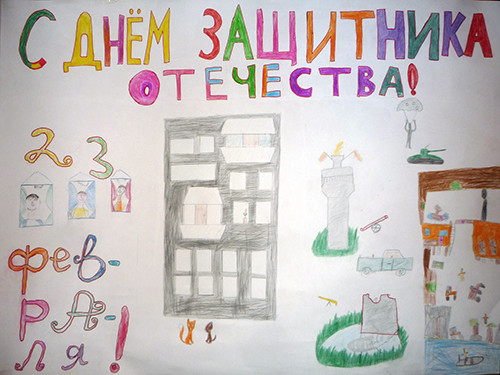 С ДНЁМ ЗАЩИТНИКА
ОТЕЧЕСТВА!
23
фев-
РА-
ля!